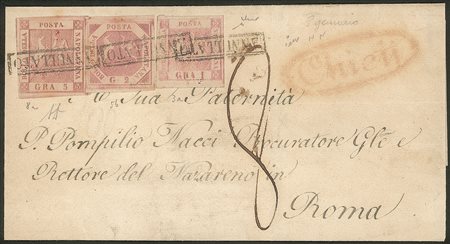 POSTA POSTA POSTA
NAPOLETANA
ANNULLATO ANNULLATO ANNULLATO
GRA 5 G 2 GRA 1
Chieti
8
A Sua Paternità
P. Pompilio Nacci Procuratore Gle e
Rettore del Nazareno in
Roma